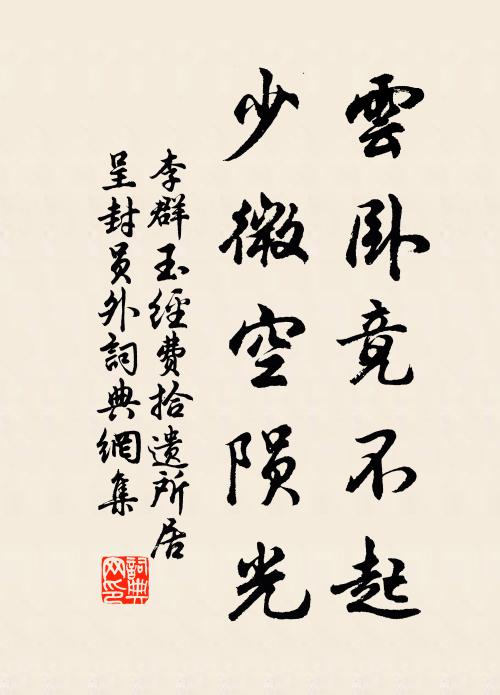 雲卧竟不起
少微空陨光
李群玉經費拾遗所居
呈封员外詞典網集
詞典网印